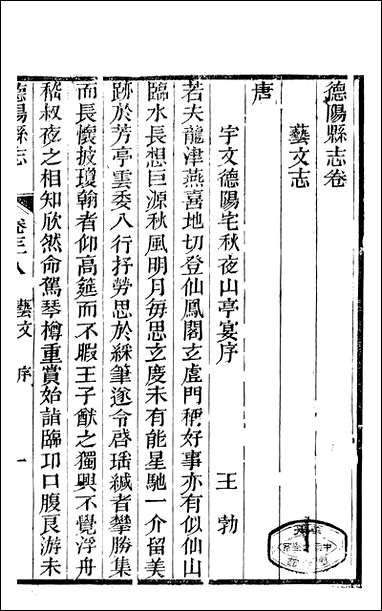 德陽縣志卷
藝文志
唐
宇文德陽宅秋夜山亭宴序 王勃
若夫龍津燕喜地切登仙鳳閣玄虛門稱好事亦有似仙山
臨水長想巨源秋風明月每思玄度未有能星馳一介留美
跡於芳亭雲委八行抒勞思於綵筆遂令啓瑤緘者攀勝集
而長懷披瓊翰者仰高筵而不暇王子猷之獨興不覺浮舟
嵇叔夜之相知欣然命駕琴樽重賞始詣臨邛口腹良游未
德陽縣志 卷三八 藝文 序 一